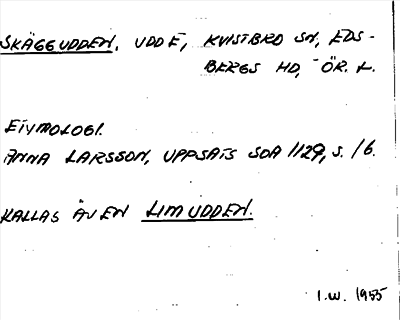 SKÄGGUDDEN, UDDE, KVISTBRO SN, EDS-
BERGS HD, ÖR. L.
ETYMOLOGI.
ANNA LARSSON, UPPSATS SOA 1129, S. 16.
KALLAS ÄVEN LIMUDDEN.
I.W. 1955